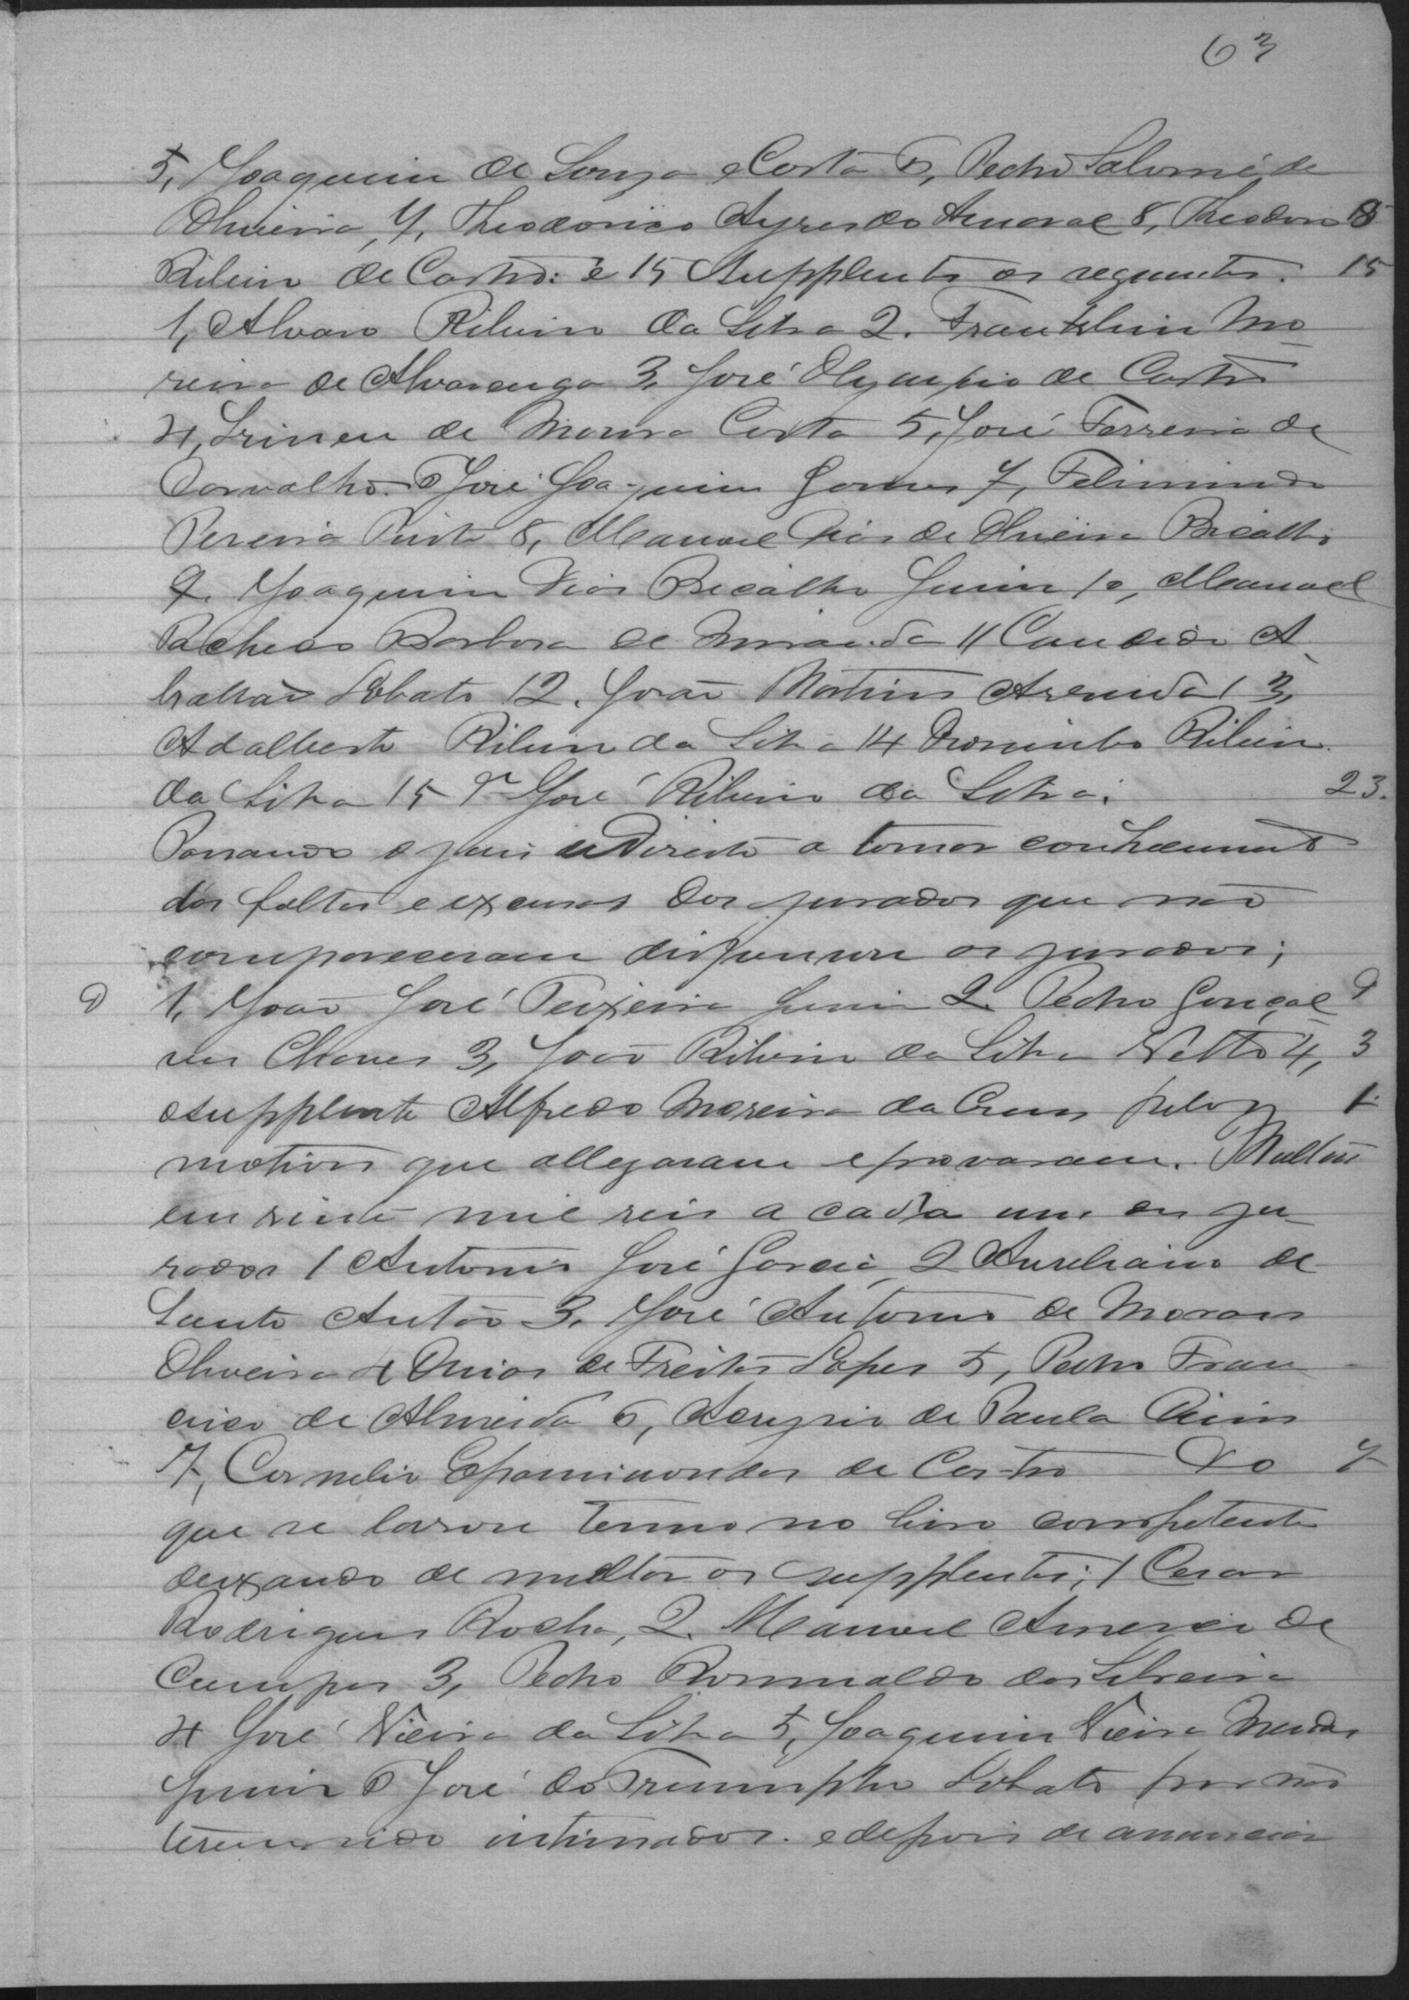 63
5, Joaquim de Souza e Costa 6, Pedro Salomé de
Oliveira, 7, Theodorico Ayres do Amaral 8, Theodoro 8
Ribeiro de Castro: e 15 Supplentes os seguintes: 15
1, Alvaro Ribeiro da Silva 2. Franklin Mo-
reira de Alvarenga 3, José Olympio de Castro
4, Irineu de Moura Costa 5, José Ferreira de
Carvalho. 6 José Joaquim Gomes 7, Felismindo
Pereira Pinto 8, Manoel Dias de Oliveira Bicalho
9. Joaquim Dias Bicalho Junior 10, Manoel
Pacheco Barbosa de Miranda 11 Candido A-
Lobato 12. João Martins Arruda 13,
Adalberto Ribeiro da Silva 14 Ribeiro
da Silva 15 Dr José Ribeiro da Silva. 23.
Passando o juiz de Direito a tomar conhecimento
das faltas e excusas dos jurados que não
compareceram dispensou os jurados;
1, João José Teixeira Junior 2. Pedro Gonçal-
ves Chaves 3, João Ribeiro da Silva Netto 4, 3
supplente Alfredo Moreira da Cruz pelos 1
motivos que allegaram e provaram. Multou
em vinte mil reis a cada um os ju-
rados 1 Antonio José Garcia, 2 Aureliano de
Santo Antão 3. José Antonio de Moraes
Oliveira 4 de Freitas Lopes 5, Pedro Fran-
cisco de Almeida 6, de Paula
7, Cornelio Epaminondas de Castro — Do 7
que se lavrou termo no livro competente
deixando de multar os supplentes; 1 Cesar
Rodrigues Rocha, 2. Manoel Americo de
Campos 3, Pedro Romualdo da Silveira
4 José Vieira da Silva 5, Joaquim Vieira
Junior 6 José do Triumpho Lobato por não
terem sido intimados. e depois de annunciar